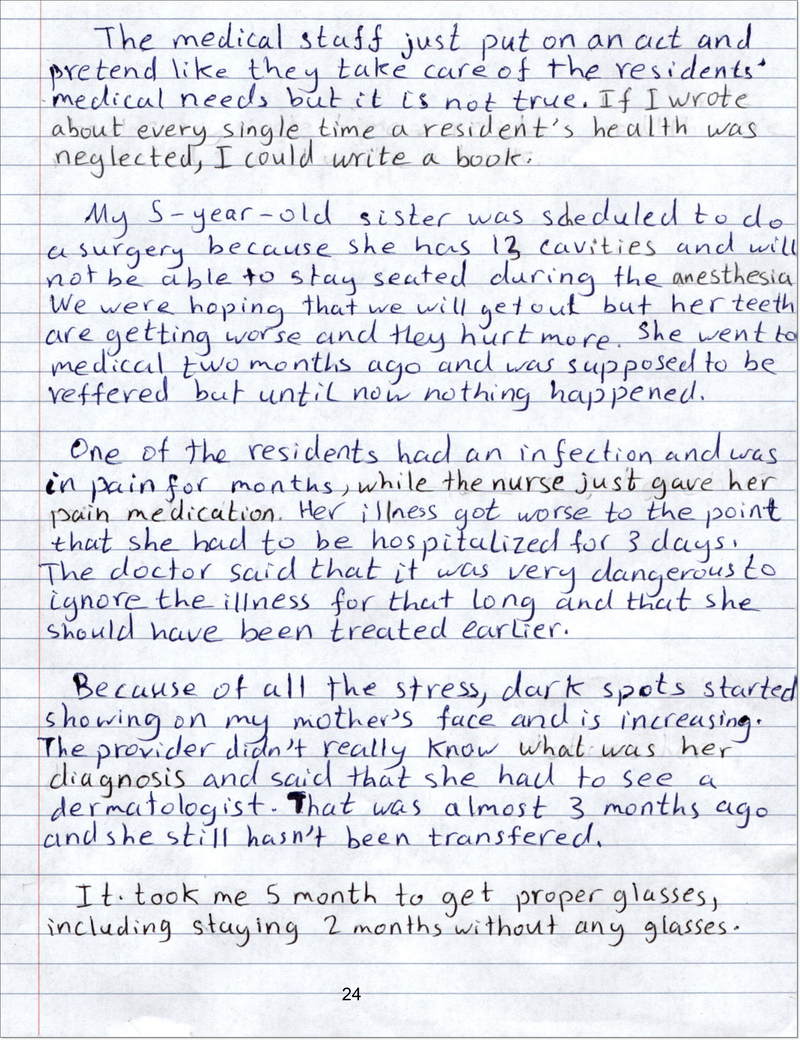 The medical staff just put on an act and
pretend like they take care of the residents'
medical needs but it is not true. If I wrote
about every single time a resident's health was
neglected, I could write a book.
My 5-year-old sister was scheduled to do
a surgery because she has 13 cavities and will
not be able to stay seated during the anesthesia
We were hoping that we will get out but her teeth
are getting worse and they hurt more. She went to
medical two months ago and was supposed to be
reffered but until now nothing happened.
One of the residents had an infection and was
in pain for months, while the nurse just gave her
pain medication. Her illness got worse to the point
that she had to be hospitalized for 3 days.
The doctor said that it was very dangerous to
ignore the illness for that long and that she
should have been treated earlier.
Because of all the stress, dark spots started
showing on my mother's face and is increasing.
The provider didn't really know what was her
diagnosis and said that she had to see a
dermatologist. That was almost 3 months ago
and she still hasn't been transfered.
It took me 5 month to get proper glasses,
including staying 2 months without any glasses.
24